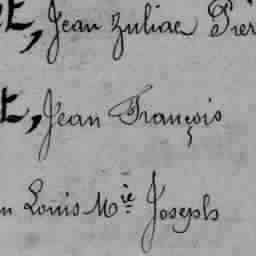 t, Jean Julien Pier
t, Jean François
n Louis Mie Joseph